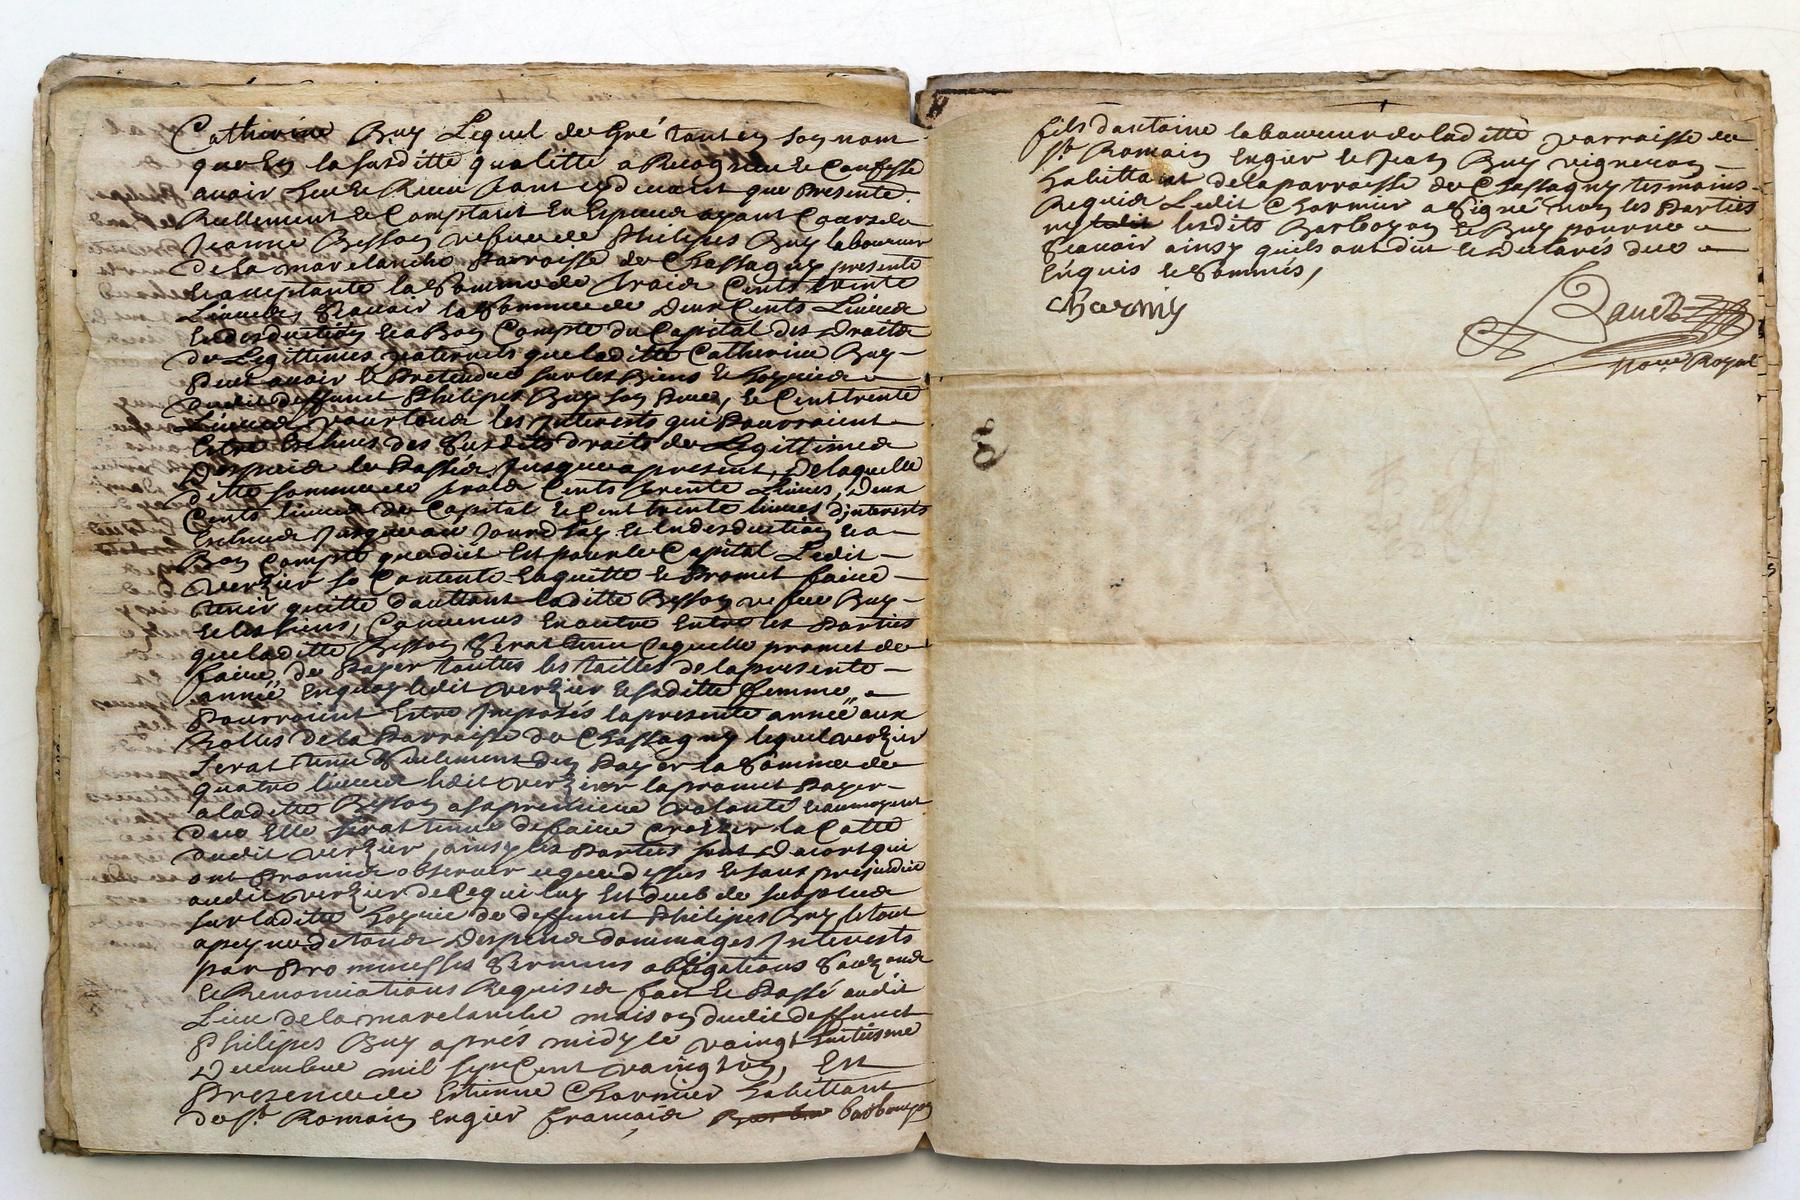 Catherine Buy Lequel de Gré tant en son nom
quen la susditte qualitté a Recogneu et Confessé
avoir heu et Receu tant cydevant que Presente
Reellement et Comptant En Especes ayant Cours de
Jeanne Besson vefue de Philipes Buy laboureur
de la marelanche Parroisse de Chassagny presente
Et acceptante la Somme de Trois Cents trente
Livres, Scavoir la Somme de Deux Cents Livres
En desduction et a Bon Compte du Capital des Droits
de Legittimes paternels que laditte Catherine Buy
Peut avoir et Pretendre sur les Biens et hoyries
dudit deffunct Philipes Buy son Pere, et Cent trente
Livres pour tous les Interests qui Pouroient
Estre Escheus des Susdits droits de Legittimes
Despuis le Passé Jusques a present, De laquelle
ditte somme de trois Cents trente Livres, Deux
Cents livres de Capital et Cent trente livres dJnterests
Escheus Jusques au Jourdhuy et En desduction et a
Bon Compte que dict Est pour le Capital Ledit
Verzier se Contente Enquitte et Promet faire
tenir quitte dauttant laditte Besson vefue Buy
et les siens, Convenus En outre Entre les Parties
que laditte Besson Serat tenu Lequelle promet de
faire, de Payer touttes les tailles de la presente
année Enquoy ledit Verzier et saditte femme
Pourroient Estre Jmposés la presente année aux
Rolles de la Parroisse de Chassagny lequel Verzier
Serat tenu Seulement den Payer la Somme de
quatre livres ledit Verzier la promet Payer
a laditte Besson a sa premiere volonté et au moyent
dece Elle serat tenue de faire la Cotte
dudit Verzier ainsy les Parties sont Dacort qui
ont Promis observer ce que dessus et sans prejudice
audit Verzier de Ce qui luy Est deub de surplus
sur laditte hoyrie de deffunct Philipes Buy le tout
a peyne de tous Despens dommages Jnterests
par Prommesses Sermens obligations
et Renonciations Requises fait et Passé audit
Lieu de la marelanche maison dudit deffunct
Philipes Buy aprés midy le vaingt huitiesme
Decembre mil sept Cent vaingt En
Prezence de Estienne Charmier habittant
de St Romain Engier françois barboyon
fils dantoine laboureur de laditte parroisse de
St Romain Engier et Jean Buy vigneron
habittant de la parroisse de Chassagny tesmoins
Requis Ledit Charmier a Signé non les Parties
ny lesdits Barboyon et Buy pour ne
Scavoir ainsy quils ont dit et Declarés de ce
Enquis et Sommés,
Charmy
Royal